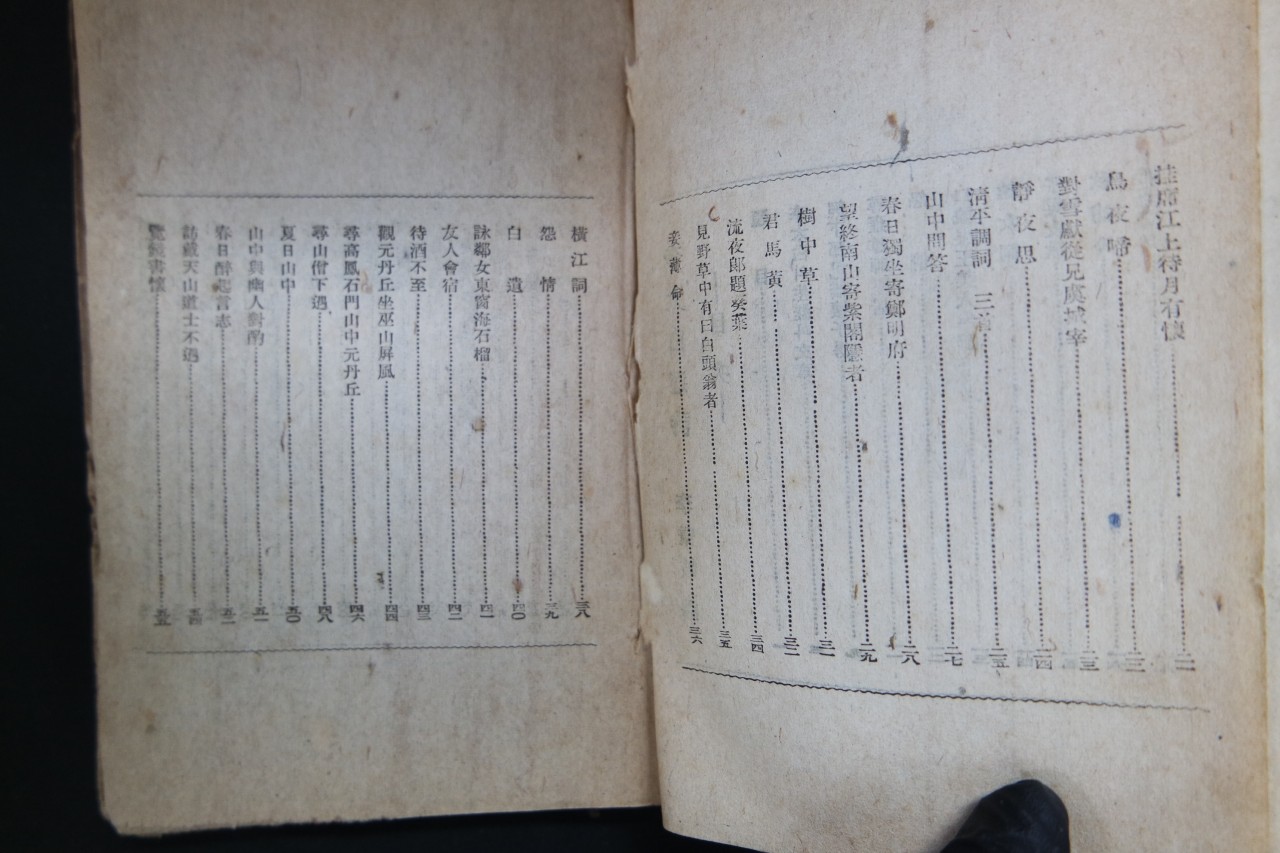 挂席江上待月有懷 二一
烏夜啼 二二
對雪獻從兄虞城宰 二三
靜夜思 二四
清平調詞 三首 二五
山中問答 二七
春日獨坐寄鄭明府 二八
望終南山寄紫閣隱者 二九
樹中草 三一
君馬黃 三二
流夜郎題葵葉 三四
見野草中有曰白頭翁者 三五
妾薄命 三六
橫江詞 三八
怨情 三九
自遣 四〇
詠鄰女東窗海石榴 四一
友人會宿 四二
待酒不至 四三
觀元丹丘坐巫山屏風 四四
尋高鳳石門山中元丹丘 四六
尋山僧不遇 四八
夏日山中 五〇
山中與幽人對酌 五一
春日醉起言志 五二
訪戴天山道士不遇 五四
覽鏡書懷 五五